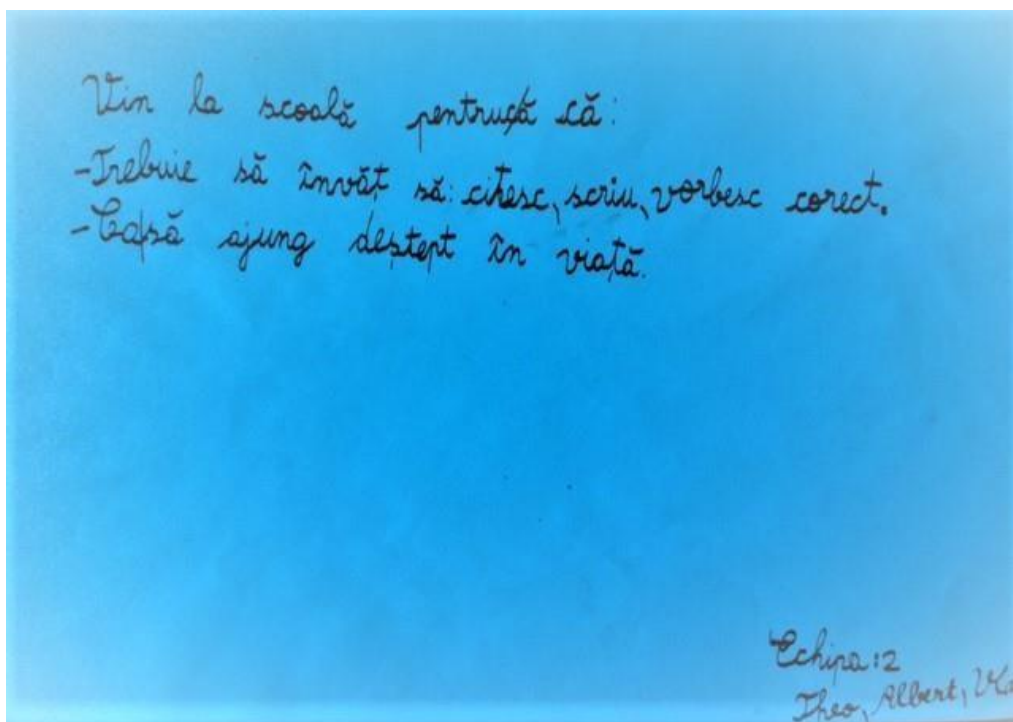 Vin la scoală pentrucă că:
-Trebuie să învăț să: citesc, scriu, vorbesc corect.
-Ca să ajung deștept în viață.
Echipa:2
Theo, Albert,